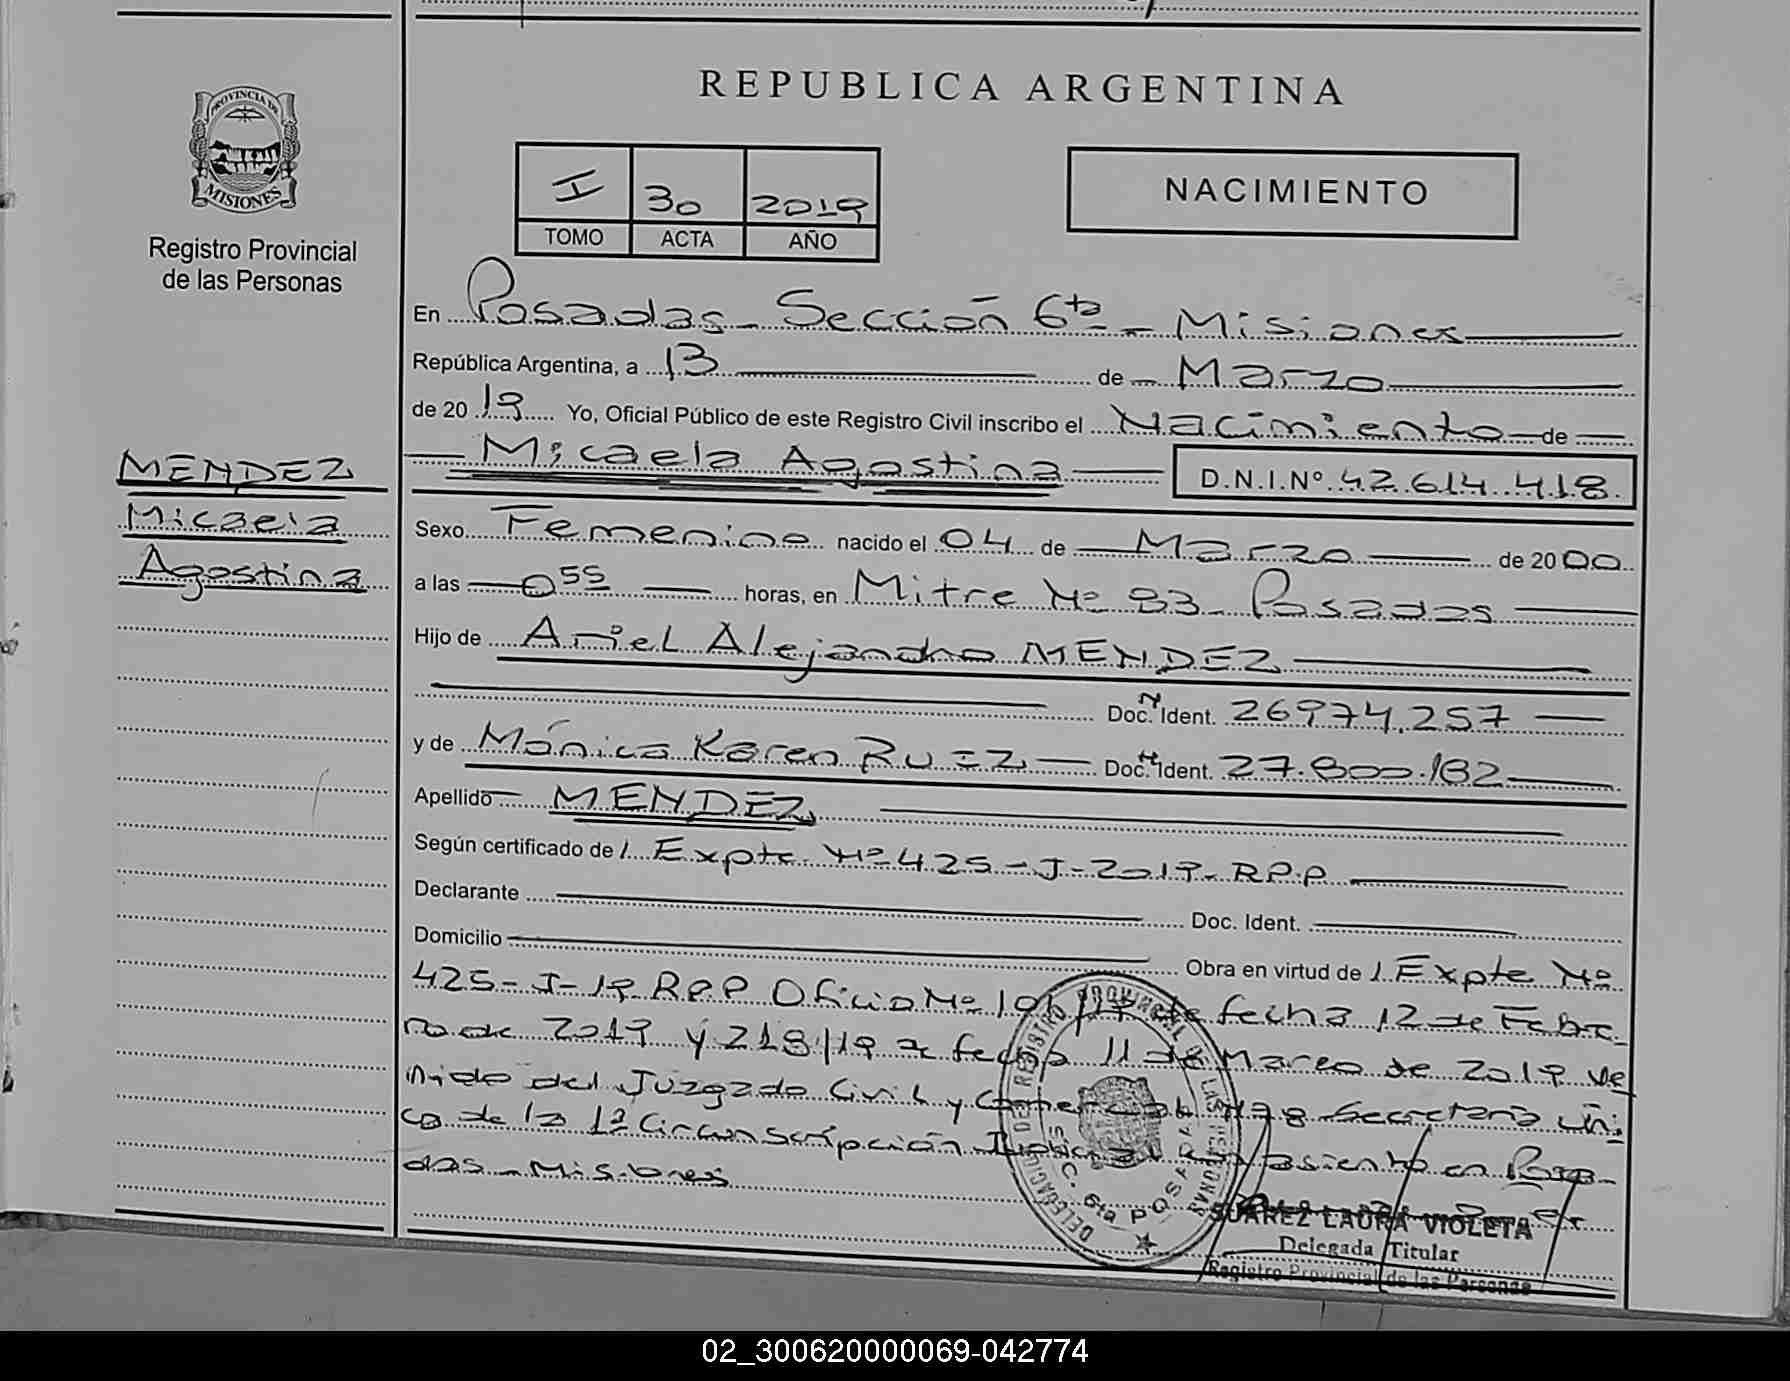 PROVINCIA DE
MISIONES
Registro Provincial
de las Personas
MENDEZ
Micaela
Agostina
REPUBLICA ARGENTINA
I 30 2019
TOMO ACTA AÑO
NACIMIENTO
En Posadas - Sección 6ta - Misiones
República Argentina, a 13 de Marzo
de 2019 Yo, Oficial Público de este Registro Civil inscribo el Nacimiento de
Micaela Agostina D.N.I.Nº 42.614.418
Sexo Femenino nacido el 04 de Marzo de 2000
a las 0 55 horas, en Mitre Nº 93 - Posadas
Hijo de Ariel Alejandro MENDEZ
Doc. N Ident. 26974.257
y de Mónica Karen RUIZ Doc. N Ident. 27.800.182
Apellido MENDEZ
Según certificado de /. Expte. Nº 425-J-2019-RPP
Declarante Doc. Ident.
Domicilio Obra en virtud de /. Expte Nº
425-J-19 R.P.P Oficio Nº de fecha 12 de Febre
ro de 2019 y 218/19 de fecha 11 de Marzo de 2019 ve
nido del Juzgado Civil y Comercial Nº 8 Secretaria úni
ca de la 1ª Circunscripción Judicial asiento en Posa
das - Misiones
DELEGACION DEL REGISTRO PROVINCIAL DE LAS PERSONAS
SEC. 6ta POSADAS
SUAREZ LAURA VIOLETA
Delegada Titular
Registro Provincial de las Personas
02_300620000069-042774